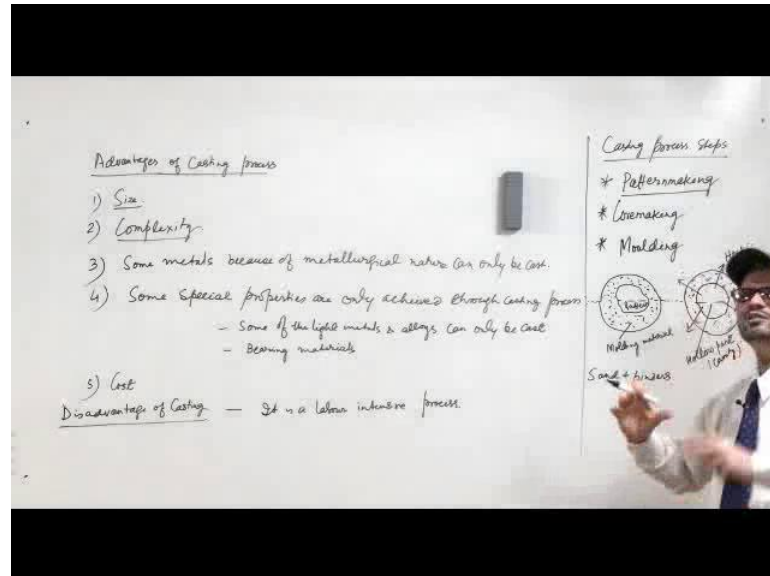 Advantages of Casting process
1) Size
2) Complexity
3) Some metals because of metallurgical nature can only be cast.
4) Some special properties are only achieved through casting process
– Some of the light metals & alloys can only be cast
– Bearing materials
5) Cost
Disadvantage of Casting — It is a labour intensive process.
Casting process steps
* Patternmaking
* Coremaking
* Moulding
Molding material
Hollow part
(cavity)
Sand + binders